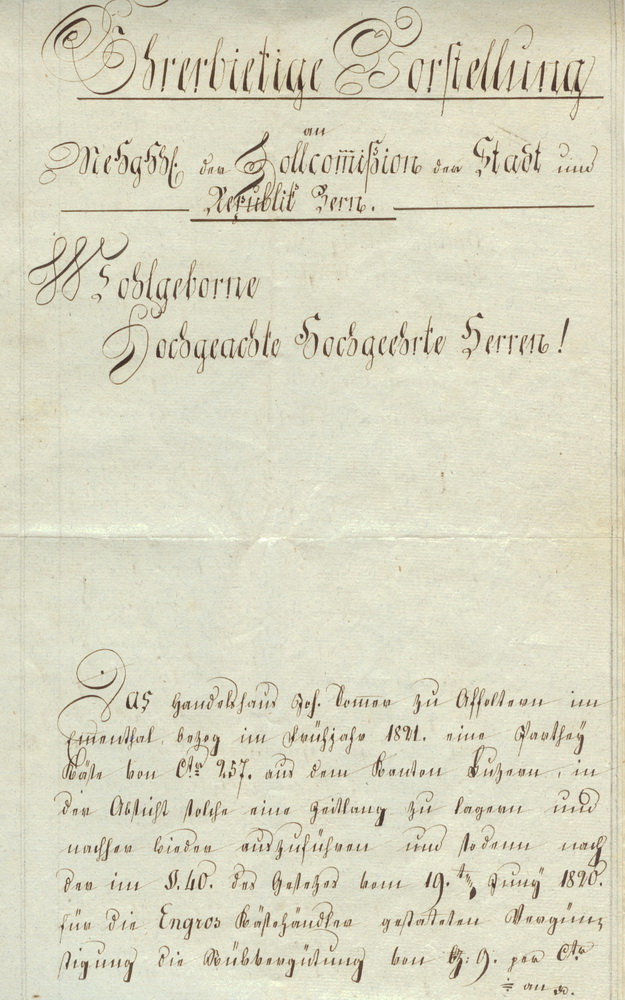 Ehrerbietige Vorstellung
an
MeHgHH. der Zollcommißion der Stadt und
Republik Bern.
Wohlgeborne
Hochgeachte Hochgeehrte Herren!
Das Handelshaus Joh. Sommer zu Affoltern im
Ementhal, bezog im Frühjahr 1821. eine Parthey
Käse von Ctr 257. aus dem Kanton Luzern, in
der Absicht solche eine Zeitlang zu lagern und
nachher wieder auszuführen und sodenn nach
der im §. 40. des Gesetzes vom 19.ten Juny 1820.
für die Engros Käsehändler gestatteten Vergün-
stigung die Rükvergütung von bz: 9. per Ctr
an